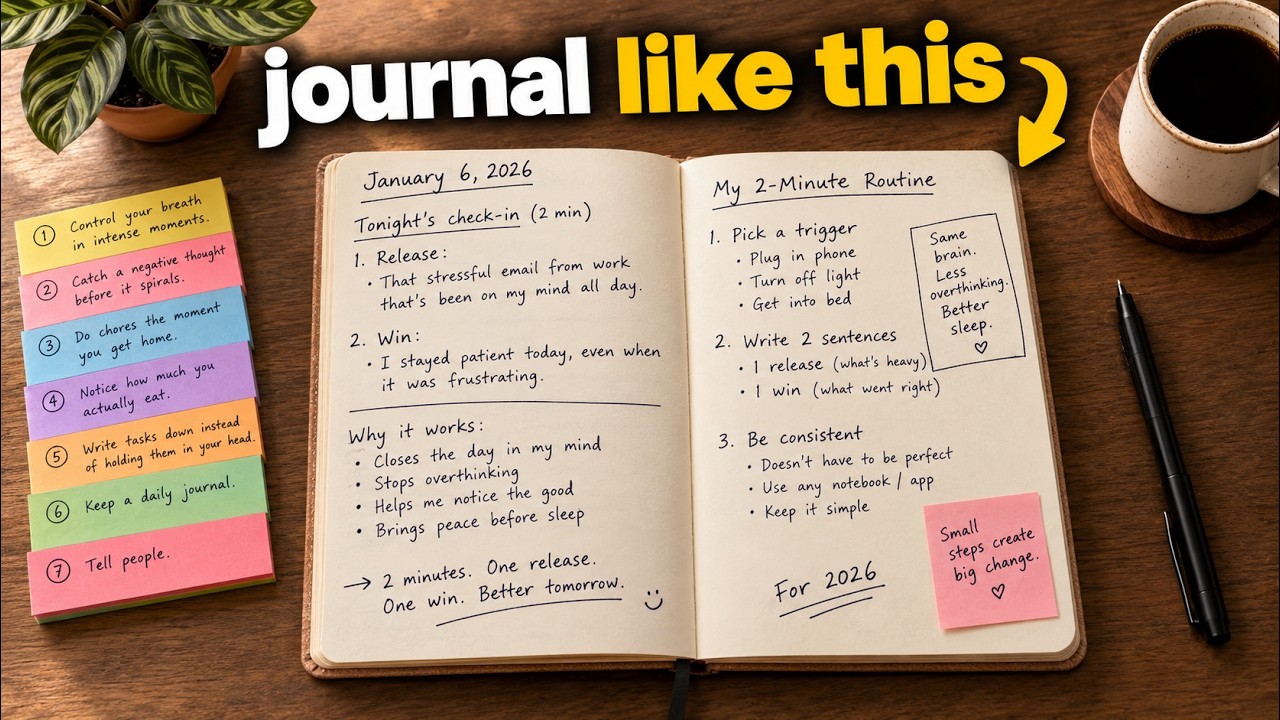 journal like this
① Control your breath
in intense moments.
② Catch a negative thought
before it spirals.
③ Do chores the moment
you get home.
④ Notice how much you
actually eat.
⑤ Write tasks down instead
of holding them in your head.
⑥ Keep a daily journal.
⑦ Tell people.
January 6, 2026
Tonight's check-in (2 min)
1. Release:
• That stressful email from work
that's been on my mind all day.
2. Win:
• I stayed patient today, even when
it was frustrating.
Why it works:
• Closes the day in my mind
• Stops overthinking
• Helps me notice the good
• Brings peace before sleep
→ 2 minutes. One release.
One win. Better tomorrow.
My 2-Minute Routine
1. Pick a trigger
• Plug in phone
• Turn off light
• Get into bed
Same
brain.
Less
overthinking.
Better
sleep.
♡
2. Write 2 sentences
• 1 release (what's heavy)
• 1 win (what went right)
3. Be consistent
• Doesn't have to be perfect
• Use any notebook / app
• Keep it simple
For 2026
Small
steps create
big change.
♡